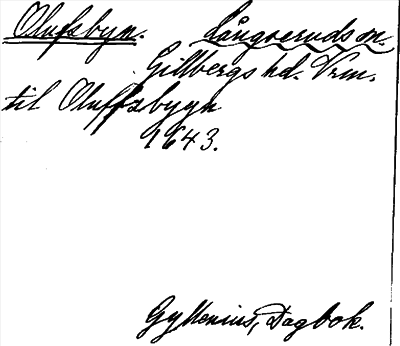 Olufsbyn. Långseruds sn.
Gillbergs hd. Vrm.
til Oluffzbygn
1643.
Gyllenius, Dagbok.